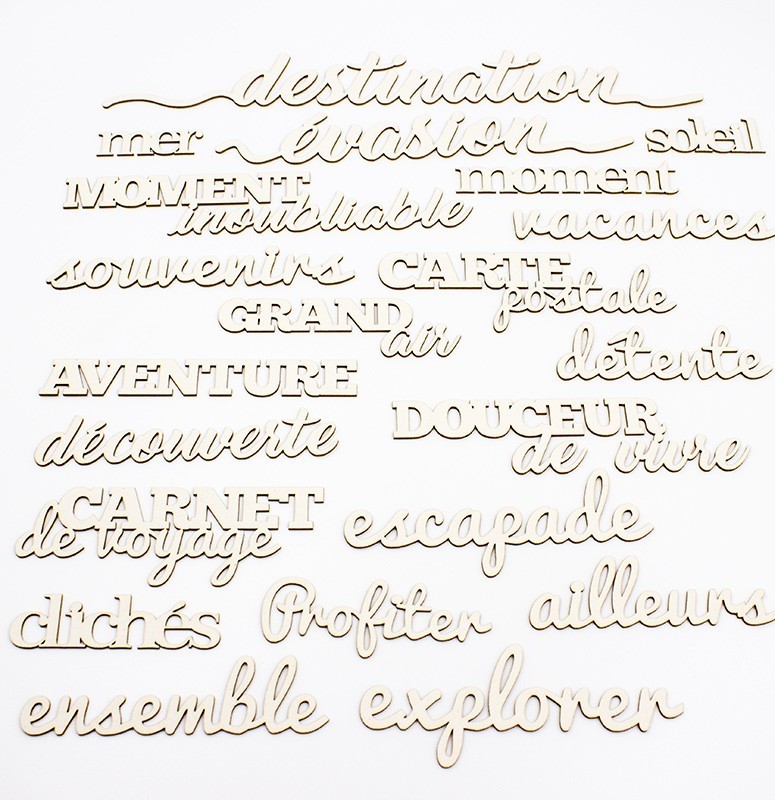 destination
mer évasion soleil
MOMENT inoubliable moment
vacances
souvenirs CARTE postale
GRAND air
détente
AVENTURE
DOUCEUR de vivre
découverte
CARNET de voyage escapade
clichés Profiter ailleurs
ensemble explorer